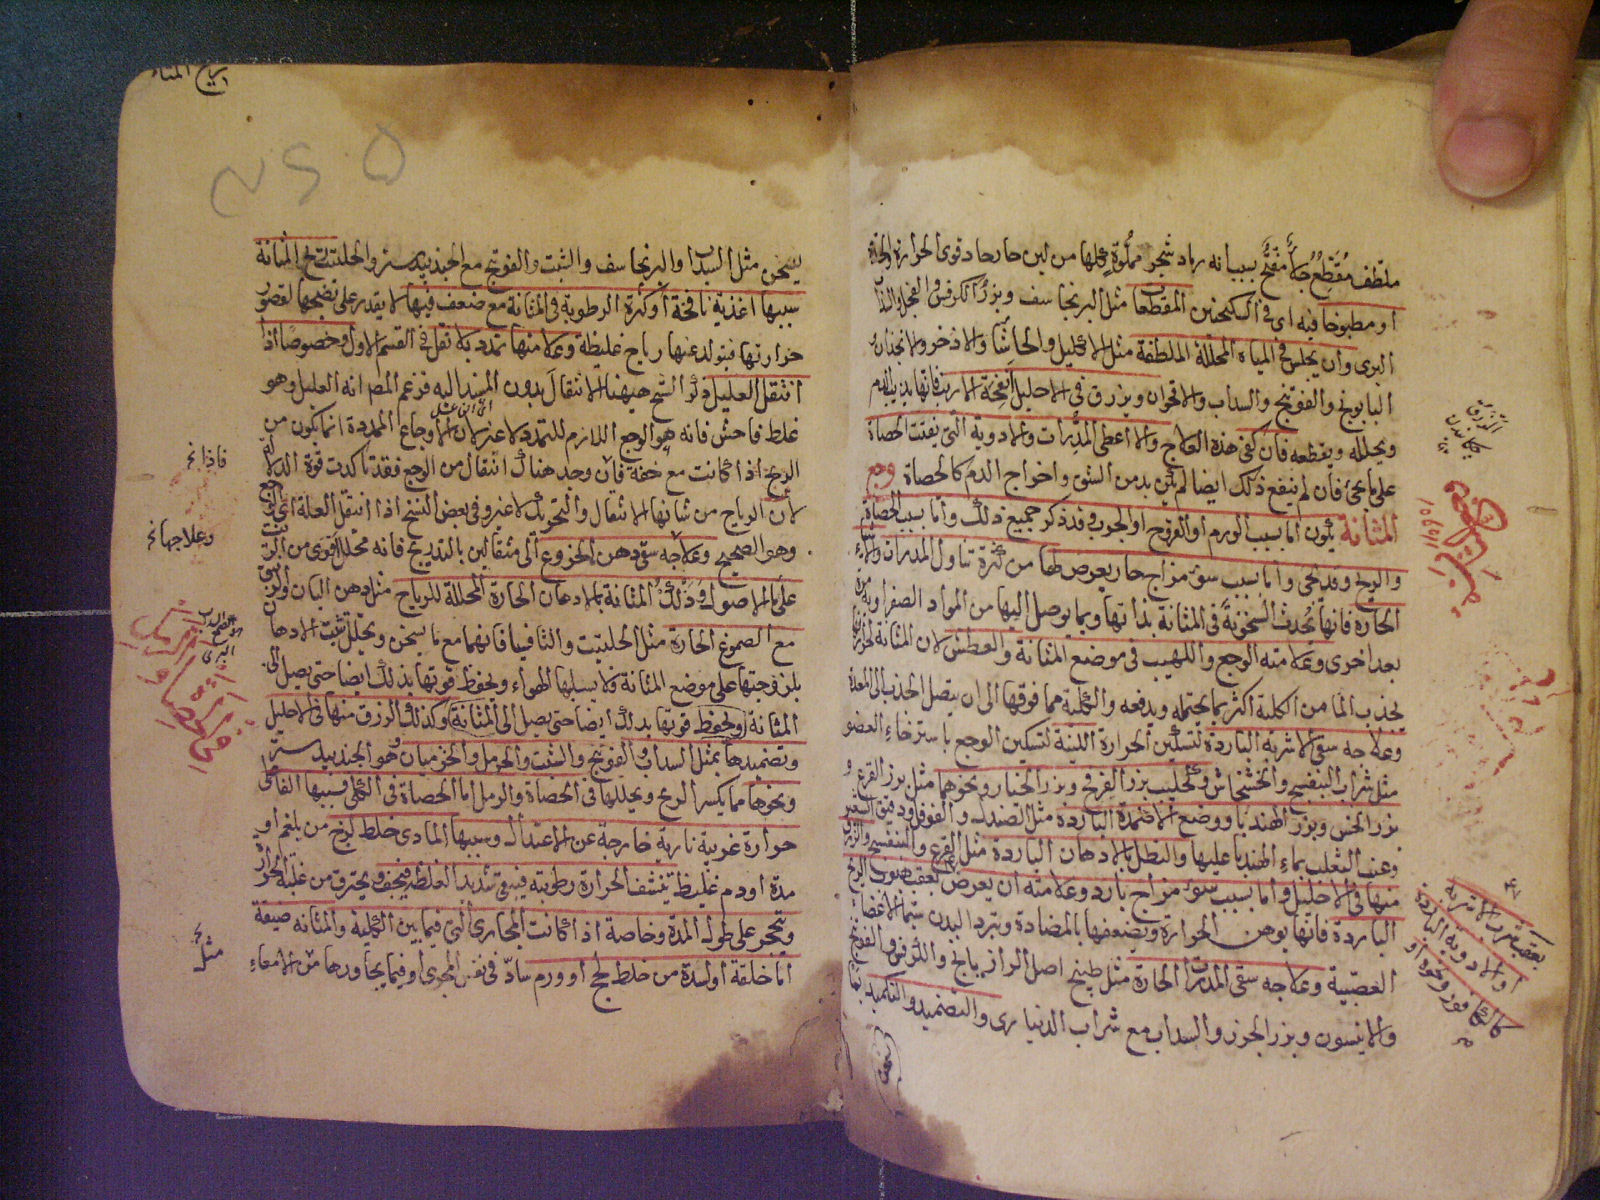 ملطف مُقَطّعٌ جلّاءٌ مفتّحٌ بسببانه رماد شجر مملوّة عملها من لبن حار حاد قوى الحرارة والحدة
او مطبوخا فيه اى فى السكنجبين المقطعات مثل البرنجاسف وبزر الكرفس والفجل والسذاب
البرى وان يجلس فى المياه المحللة الملطفة مثل الاكليل والحاشا والاذخر والانجذان
البابونج والفوتنج والسداب والاقحوان ويزرق فى الاحليل انفحة الارنب فانها يذيب الدم
ويحلله ويقطعه فان كفى هذه العلاج والا اعطى المدرات والادوية التى يفتت الحصاة
على ما يجئ فان لم ينفع ذلك ايضا لم يكن بد من الشق واخراج الدم كالحصاة وجع
المثانة يكون اما بسبب الورم او القروح او الجرب وقد ذكر جميع ذلك واما بسبب الحصاة
والريح وقد يجى واما بسبب سوء مزاج حار يعرض لها من كثرة تناول المدرات والاشياء
الحارة فانها تحدث السخونة فى المثانة بذاتها وبما يوصل اليها من المواد الصفراوية مرة
بعد اخرى وعلامته الوجع واللهيب فى موضع المثانة والعطش لان المثانة لحرارتها
يجذب الما من الكلية اكثر مما يحتمله ويدفعه والكلية مما فوقها الى ان يتصل الجذب الى المعدة
وعلاجه سقى الاشربة الباردة لتسكين الحرارة اللينة لتسكين الوجع باسترخاء العضو
مثل شراب البنفسج والخشخاش وكحليب بزر القرفخ وبزر الخيار ونحوهما مثل بزر القرع و
بزر الخس وبزر الهندبا ووضع الاضمدة الباردة مثل الصندل والفوفل ودقيق الشعير
وعنب الثعلب بماء الهندبا عليها والنطل بالادهان الباردة مثل القرع والبنفسج والزرق
منها فى الاحليل واما بسبب سوء مزاج بارد وعلامته ان يعرض بعقب هبوب الريح
الباردة فانها يوهن الحرارة ويضعفها بالمضادة وتبرد البدن سيما الاعضاء
العصبية وعلاجه سقى المدرات الحارة مثل طبيخ اصل الرازيانج والكرفس والفوتنج
والانيسون وبزر الجزر والسداب مع شراب الدينارى والتضميد والتكميد بما
يسخن
وجع المثانة
بعقب شرب الاشربة
او الادوية الباردة
كالكافور ونحوه
يسخن مثل السداب والبرنجاسف والشبت والفوتنج مع الجندبيدستر والحلتيت ريح المثانة
سببها اغذية نافخة او كثرة الرطوبة فى المثانة مع ضعف فيها لا يقدر على نضجها لقصور
حرارتها فيتولد عنها رياح غليظة وعلامتها تمدد بلا ثقل فى القسم الاول وخصوصا اذا
انتقل العليل ذكر الشيخ هيهنا الانتقال بدون المسند اليه فزعم المص انه العليل وهو
غلط فاحش فانه هو الوجع اللازم للتمدد لا غير لان الاوجاع الممددة انما يكون من
الريح اذا كانت مع خفة فان وجد هناك انتقال من الوجع فقد تاكدت قوة الدلالة
لان الرياح من شانها الانتقال والتحريك لا غير وفى بعض النسخ اذا انتقل العلة اى الوجع
وهو الصحيح وعلاجه سقى دهن الخروع الى مثقالين بالتدريج فانه محلل اقوى من الزيت
على ماء الاصول ودَلْكُ المثانة بالادهان الحارة المحللة للرياح مثل دهن البان والزنبق
مع الصموغ الحارة مثل الحلتيت والثافسيا فانهما مع ما يسخن ويحلل يثبت الادهان
بلزوجتها على موضع المثانة فلا يسبلها الهواء ويحفظ قوتها بذلك ايضا حتى يصل الى
المثانة ويحفظ قوتها بذلك ايضا حتى يصل الى المثانة وكذلك الزرق منها فى الاحليل
وتضميدها بمثل السداب والفوتنج والشبت والحرمل والخزميان وهو الجندبيدستر
ونحوها مما يكسر الريح ويحللها فى الحصاة والرمل اما الحصاة فى الكلى فسببها الفاعلى
حرارة غريبة نارية خارجة عن الاعتدال وسببها المادى خلط لزج من بلغم او
مدة او دم غليظ تنشف الحرارة رطوبته فيبقى شديد الغلظ فيجف ويحترق من غلبة الحرارة
ويتحجر على طول المدة وخاصة اذا كانت المجارى التى فيما بين الكلية والمثانة ضيقة
اما خلقة او لسدة من خلط لحج او ورم سادّ فى نفس المجرى او فيما يجاورها من الامعاء
فاذا نخ
وعلاجها نخ
مثل نخ